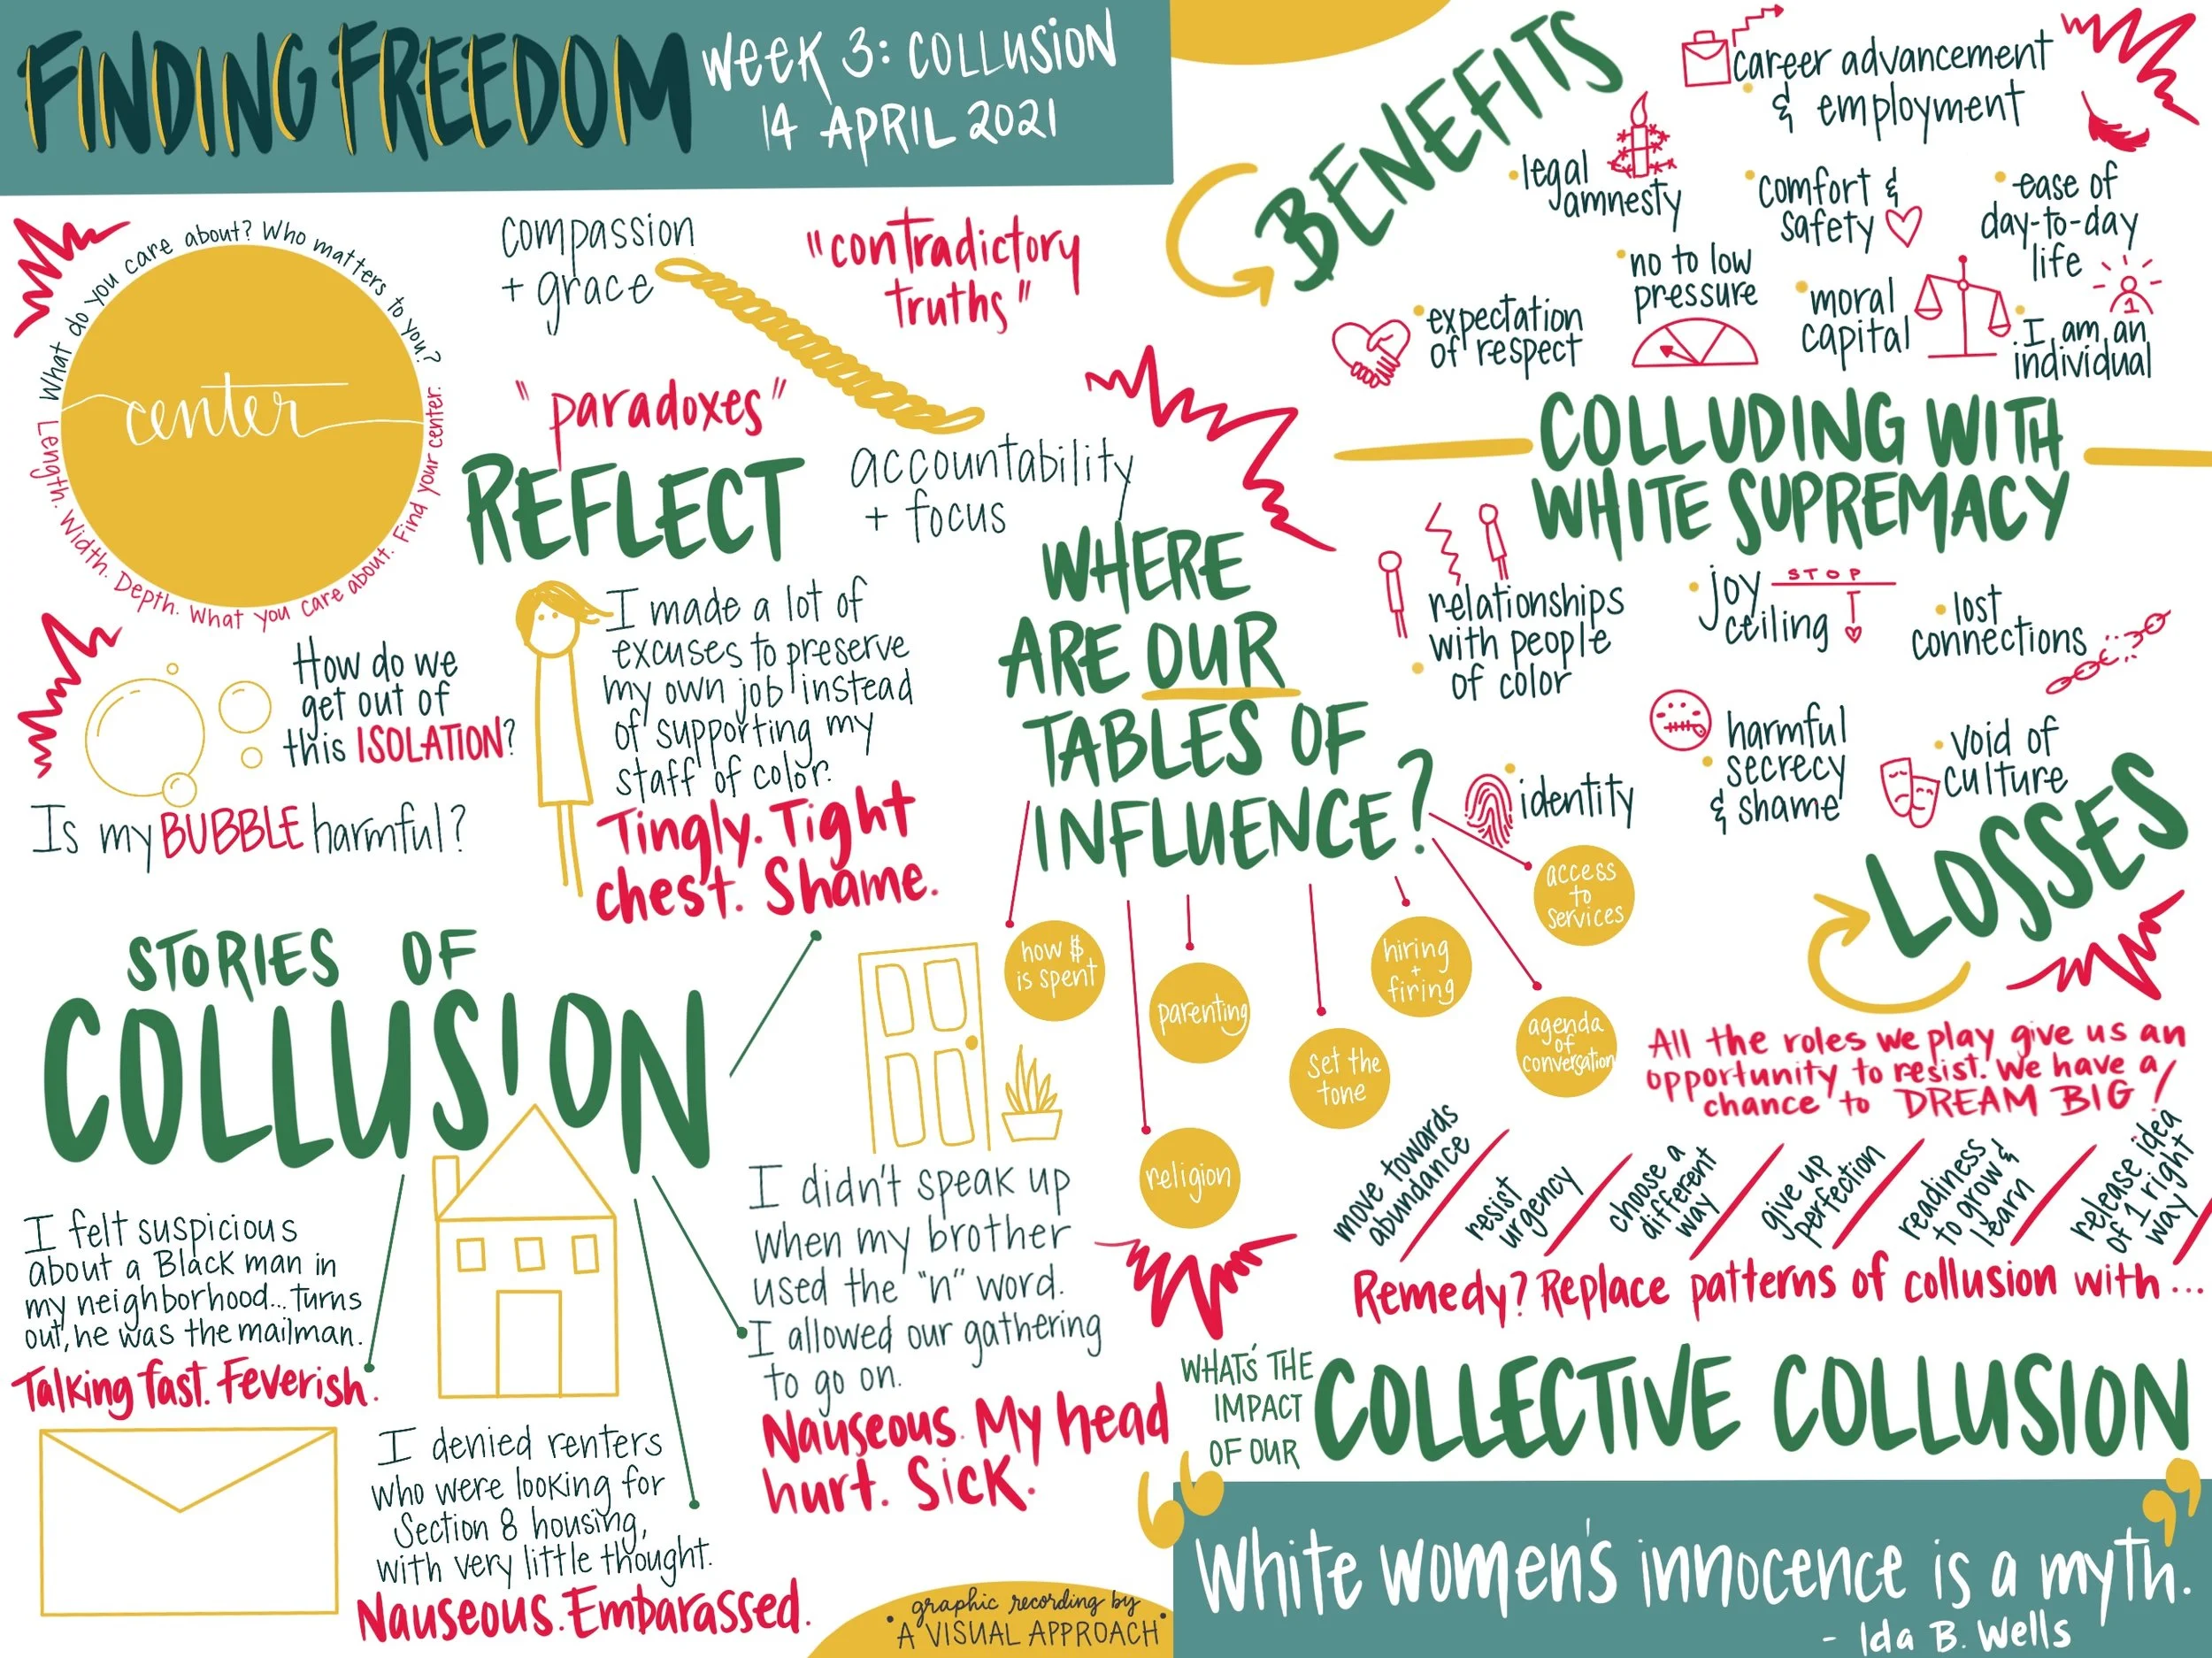 FINDING FREEDOM
Week 3: COLLUSION
14 APRIL 2021
What do you care about? Who matters to you?
center
Length. Width. Depth. What you care about. Find your center.
compassion
+ grace
"contradictory
truths"
"paradoxes"
REFLECT
accountability
+ focus
How do we
get out of
this ISOLATION?
Is my BUBBLE harmful?
I made a lot of
excuses to preserve
my own job instead
of supporting my
staff of color.
Tingly. Tight
chest. Shame.
STORIES OF
COLLUSION
I felt suspicious
about a Black man in
my neighborhood... Turns
out, he was the mailman.
Talking fast. Feverish.
I denied renters
who were looking for
Section 8 housing,
with very little thought.
Nauseous. Embarassed.
I didn't speak up
when my brother
used the "n" word.
I allowed our gathering
to go on.
Nauseous. My head
hurt. Sick.
graphic recording by
A VISUAL APPROACH
WHERE
ARE OUR
TABLES OF
INFLUENCE?
how $
is spent
parenting
religion
Set the
tone
hiring
+
firing
agenda
of
conversation
access
to
services
BENEFITS
• career advancement
& employment
• legal
amnesty
• comfort &
safety
• ease of
day-to-day
life
• expectation
of respect
• no to low
pressure
• moral
capital
1
• I am an
individual
COLLUDING WITH
WHITE SUPREMACY
• relationships
with people
• of color
• joy
ceiling
STOP
• lost
connections
• identity
harmful
• secrecy
& shame
• void of
culture
LOSSES
All the roles we play give us an
opportunity to resist. We have a
chance to DREAM BIG!
move towards
abundance
resist
urgency
choose a
different
way
give up
perfection
readiness
to grow &
learn
release idea
of 1 right
way
Remedy? Replace patterns of collusion with...
WHAT'S THE
IMPACT
OF OUR
COLLECTIVE COLLUSION
“White women's innocence is a myth.”
- Ida B. Wells